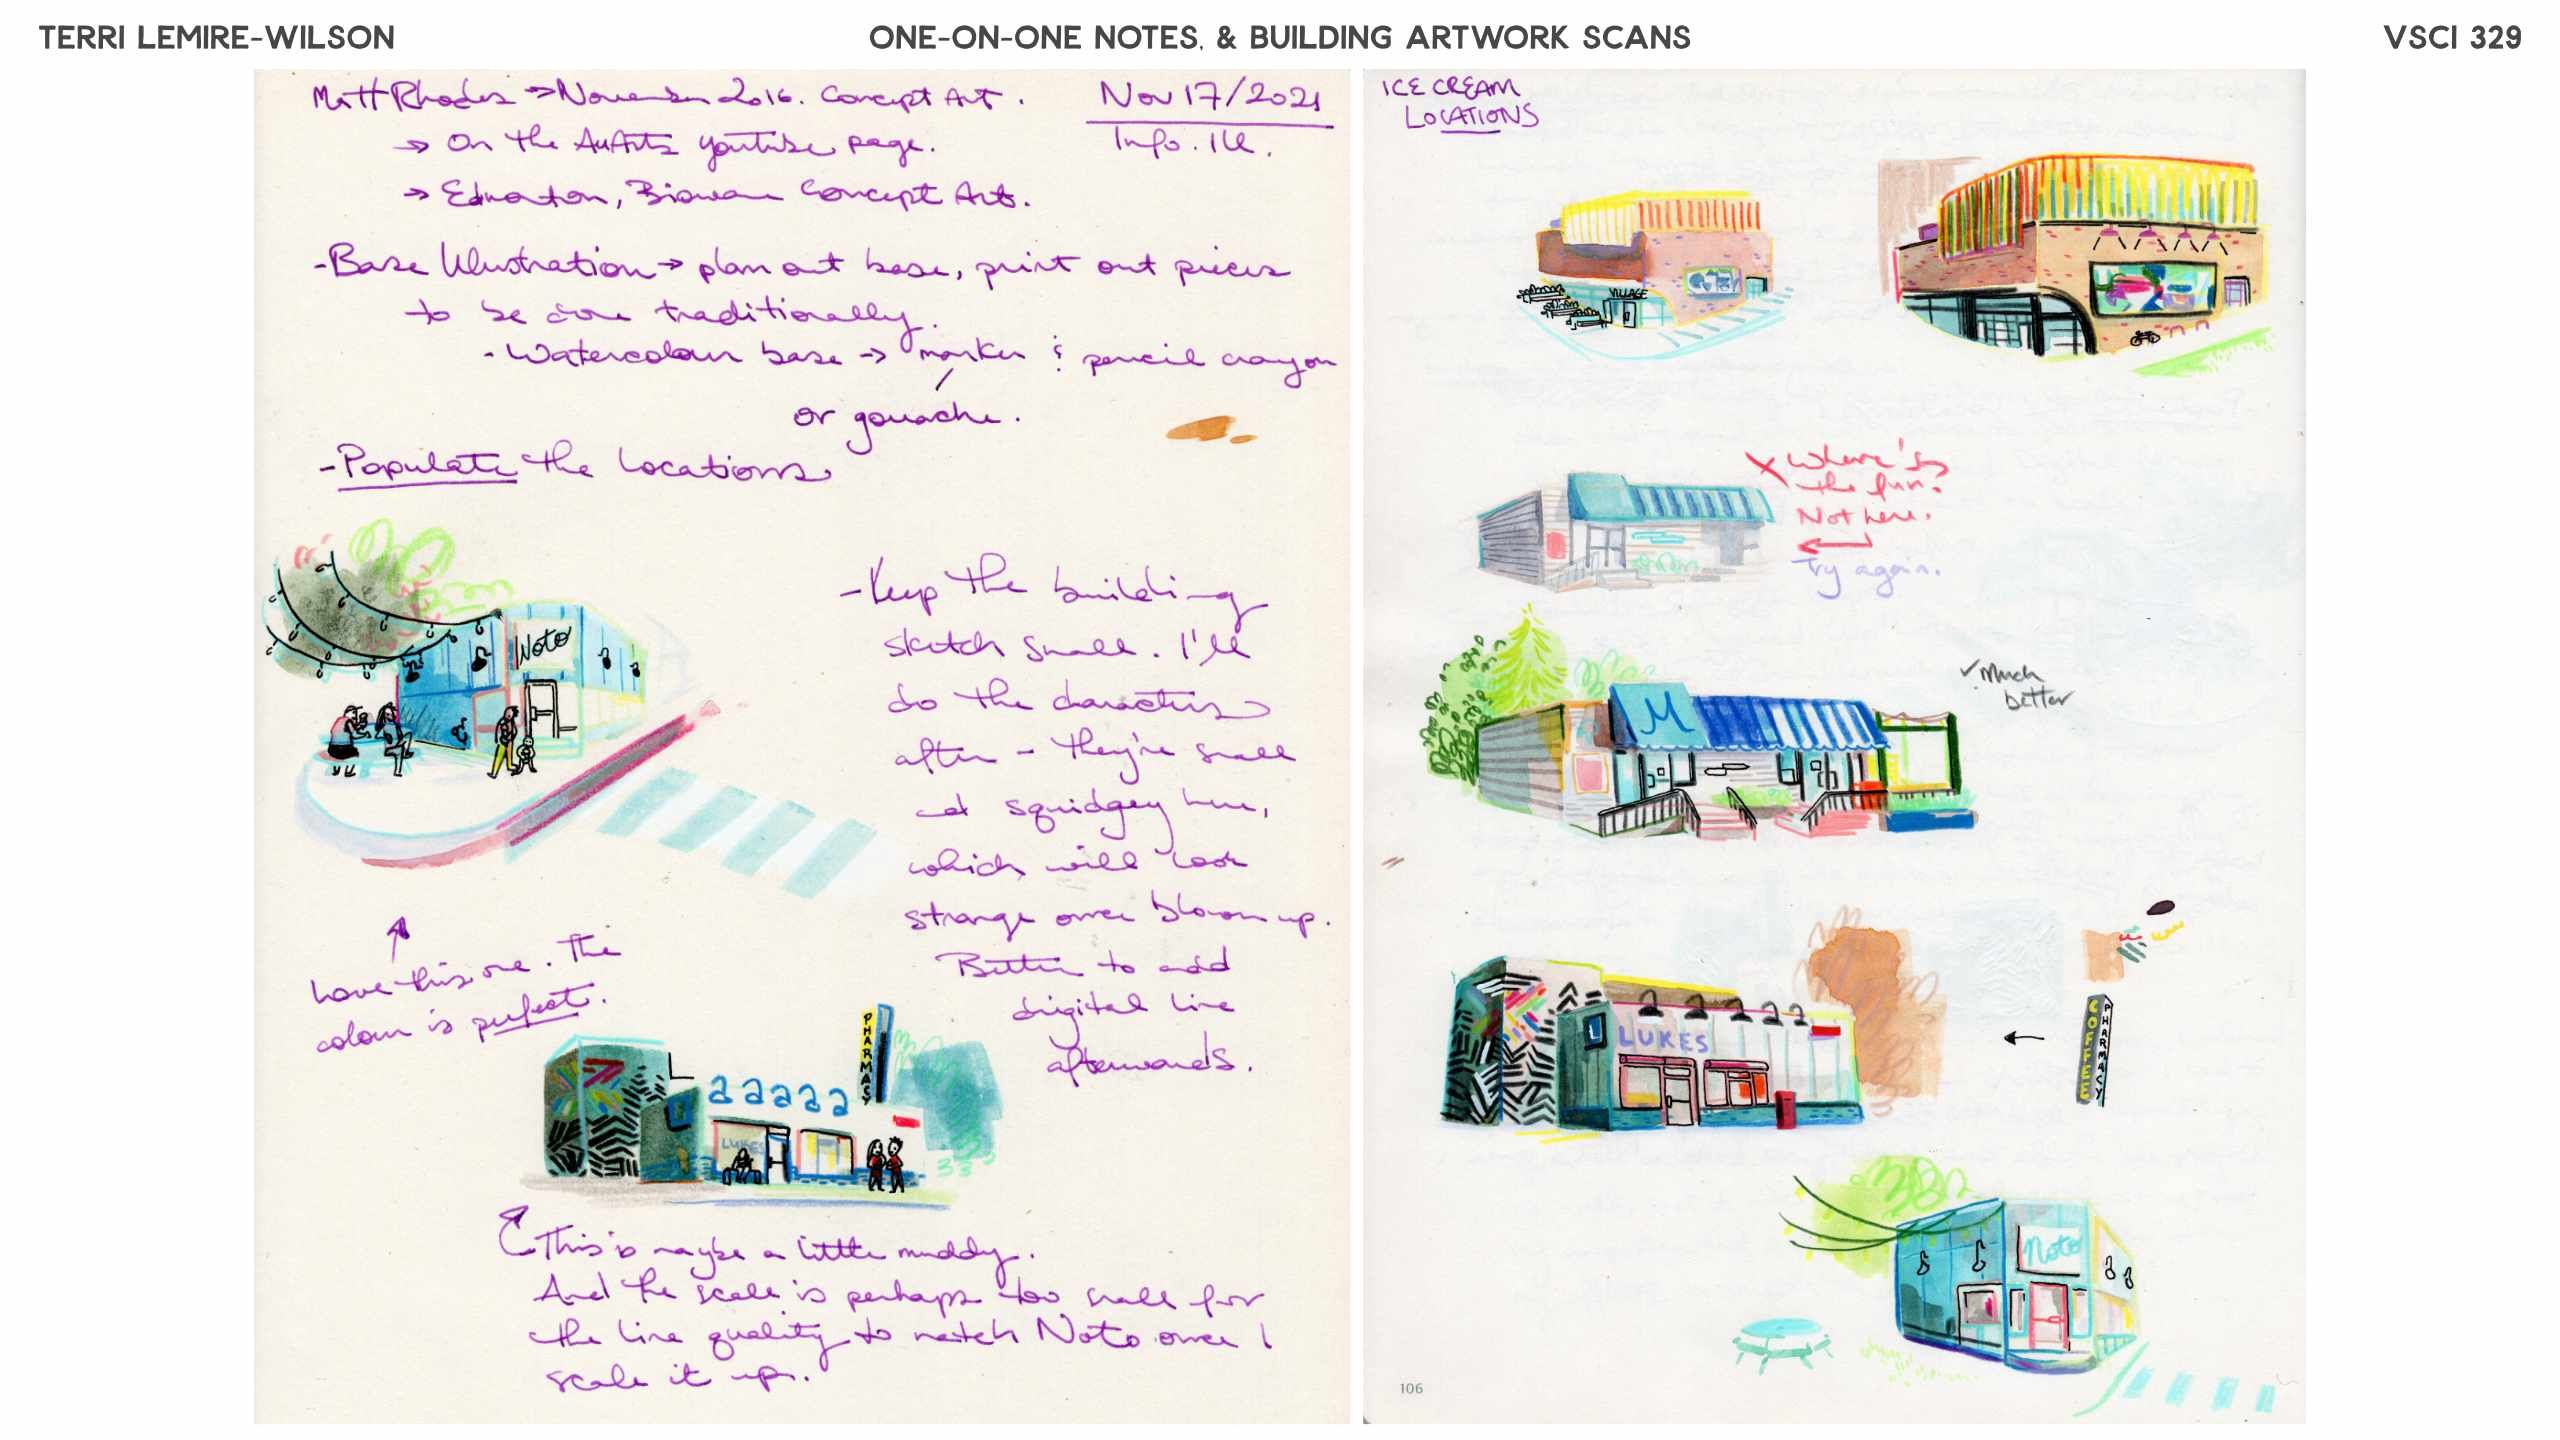 TERRI LEMIRE-WILSON
ONE-ON-ONE NOTES, & BUILDING ARTWORK SCANS
VSCI 329
Matt Rhodes → November 2016. Concept Art.
Nov 17/2021
Info. Ill.
→ On the AuArts youtube page.
→ Edmonton, Bioware Concept Art.
- Base Illustration → plan out base, print out pieces
to be done traditionally.
- Watercolour base → marker & pencil crayon
or gouache.
- Populate the locations
Noto
- Keep the building
sketch small. I'll
do the characters
after - they're small
and squidgey here,
which will look
strange once blown up.
Better to add
digital line
afterwards.
Love this one. The
colour is perfect.
PHARMACY
LUKES
This is maybe a little muddy.
And the scale is perhaps too small for
the line quality to match Noto once I
scale it up.
ICE CREAM
LOCATIONS
VILLAGE
X Where's
the fun.
Not here.
Try again.
M
✓ Much
better
LUKES
COFFEE
PHARMACY
Noto
106